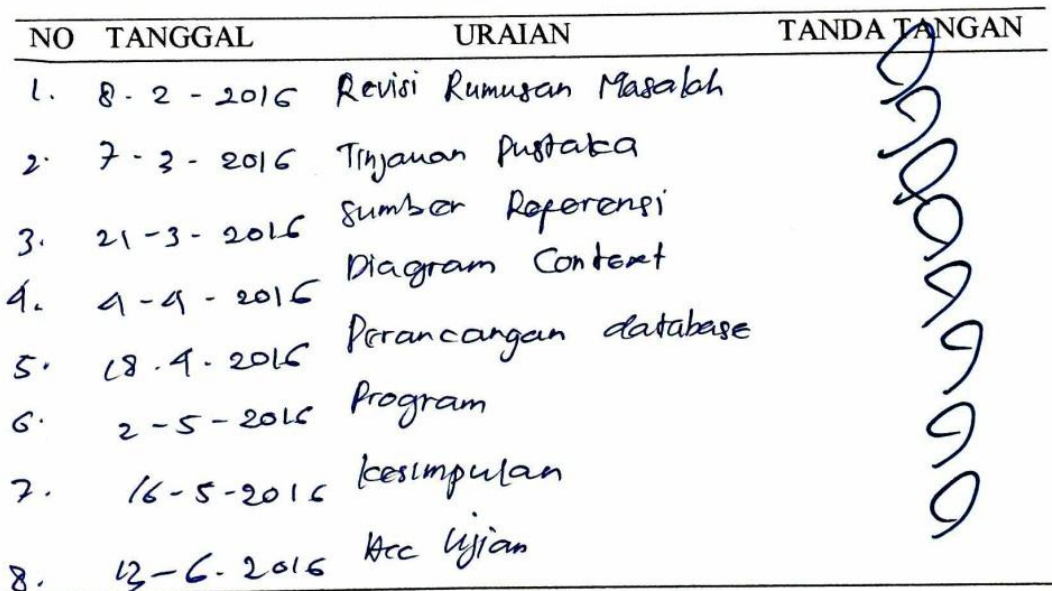 NO TANGGAL URAIAN TANDA TANGAN
1. 8-2-2016 Revisi Rumusan Masalah
2. 7-3-2016 Tinjauan Pustaka
3. 21-3-2016 Sumber Referensi
4. 4-4-2016 Diagram Context
5. 18.4.2016 Perancangan database
6. 2-5-2016 Program
7. 16-5-2016 Kesimpulan
8. 13-6-2016 Acc Ujian